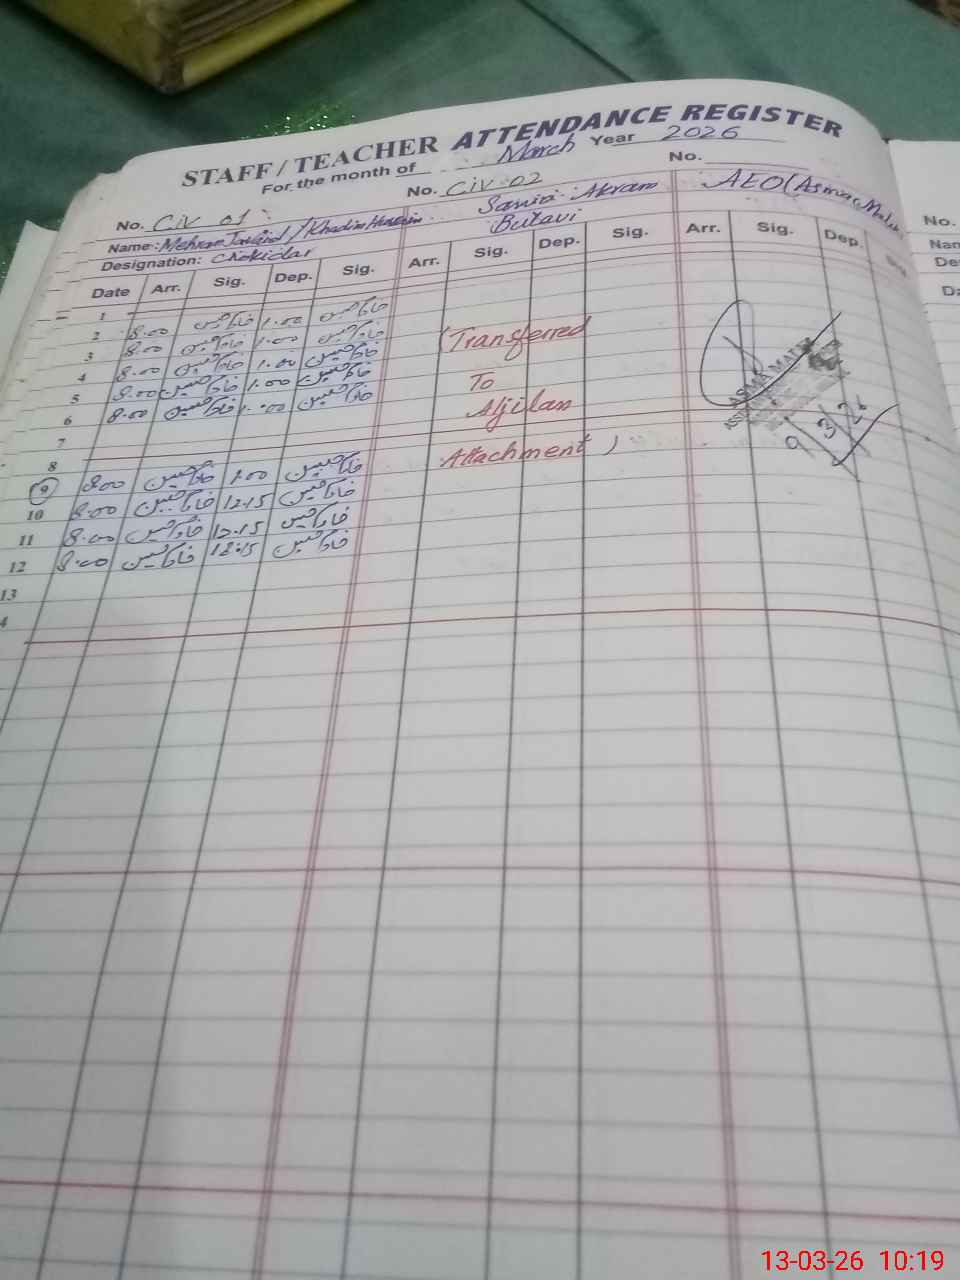 STAFF / TEACHER ATTENDANCE REGISTER
For the month of March Year 2026
No. Civ 01 No. Civ 02 No.
Name: Mehran Javaid / Khadim Hussain Samia Akram AEO (Asma Malik)
Designation: Chokidar Butavi
Date Arr. Sig. Dep. Sig. Arr. Sig. Dep. Sig. Arr. Sig. Dep.
1
2 8.00 خادم حسین 1.00 خادم حسین
3 8.00 خادم حسین 1.00 خادم حسین
4 8.00 خادم حسین 1.00 خادم حسین
5 8.00 خادم حسین 1.00 خادم حسین
6 8.00 خادم حسین خادم حسین
7
8
9 8.00 خادم حسین 1.00 خادم حسین
10 8.00 خادم حسین 12.15 خادم حسین
11 8.00 خادم حسین 12.15 خادم حسین
12 8.00 خادم حسین 12.15 خادم حسین
13
4
(Transferred
To
Aljilan
Attachment)
ASMA MALIK
9/3/26
No.
Nam
De
Da
13-03-26 10:19